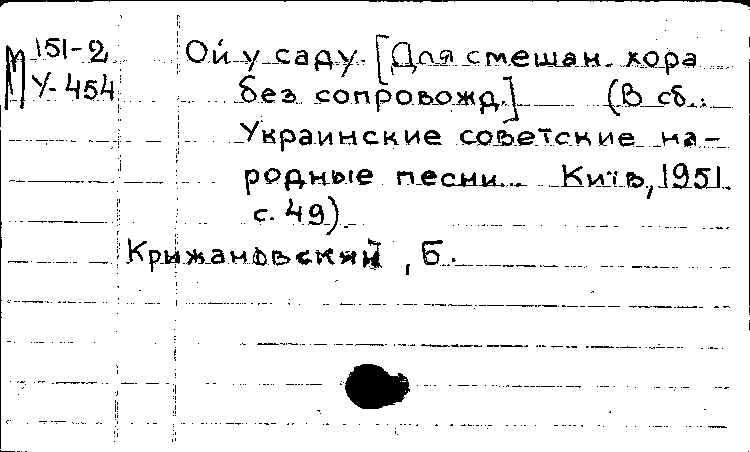 М 151-2
У-454
Ой у саду. [Для смешан. хора
без сопровожд.] (В сб.:
Украинские советские на-
родные песни... Київ, 1951.
с. 49)
Крижановский, Б.